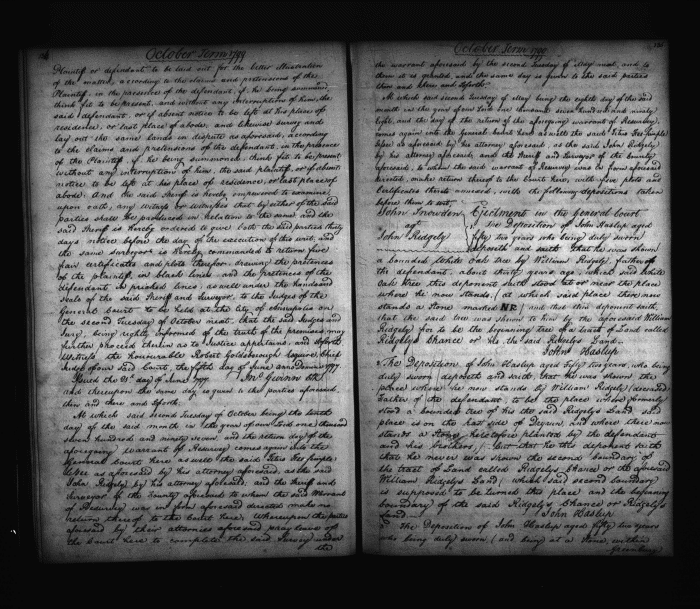 October Term 1799
Plaintiff or defendant to be laid out for the better illustration
of the matter, according to the claims and pretensions of the
Plaintiff, in the presence of the defendant, if he being summoned,
think fit to be present, and without any interruption of him, the
said defendant, or if absent notice to be left at his place of
residence, or last place of abode, and likewise survey and
lay out the same lands in dispute as aforesaid, according
to the claims and pretensions of the defendant, in the presence
of the Plaintiff, if he being summoned, think fit to be present
without any interruption of him, the said plaintiff, or if absent
notice to be left at his place of residence, or last place of
abode. And the said Sheriff is hereby impowered to examine
upon oath, any witness or witnesses that by either of the said
parties shall be produced in relation to the same and the
said Sheriff is hereby ordered to give both the said parties thirty
days notice before the day of the execution of this writ, and
the same surveyor is hereby commanded to return five
fair certificates and plots thereof, drawing the pretences
of the plaintiff in black lines and the pretences of the
defendant in pricked lines, as well under the hands and
Seals of the said Sheriff and Surveyor, to the Judges of the
General Court to be held at the city of Annapolis on
the second Tuesday of October next, that the said Judges and
Jury, being rightly informed of the truth of the premises, may
further proceed therein as to Justice appertains, and so forth
Witness the Honourable Robert Goldsborough Esquire Chief
Judge of our said Court, the fifth day of June anno Domini 1797
Issued the 21st day of June 1797. Jno. Gwinn Clk
and thereupon the same day is given to the parties aforesaid,
then and there and so forth.
At which said second Tuesday of October being the tenth
day of the said month in the year of our Lord one thousand
seven hundred and ninety seven and the return day of the
aforegoing warrant of Resurvey comes again into the
General Court as well the said Titus Fee simple
Lessee as aforesaid by his attorney aforesaid, as the said
John Ridgely by his attorney aforesaid, and the sheriff and
Surveyor of the County aforesaid to whom the said Warrant
of Resurvey was in form aforesaid directed make no
return thereof to the Court here. Whereupon the parties
aforesaid by their attornies aforesaid pray leave of
the Court here to complete the said Survey under
the
October Term 1799
the warrant aforesaid by the second Tuesday of May next, and to
them it is granted, and the same day is given to the said parties
then and there and so forth.
At which said second Tuesday of May being the eighth day of the said
month in the year of our Lord one thousand seven hundred and ninety
eight, and the day of the return of the aforegoing warrant of Resurvey,
comes again into the general Court here as well the said Titus Fee simple
Lessee as aforesaid by his attorney aforesaid, as the said John Ridgely
by his attorney aforesaid, and the Sheriff and Surveyor of the County
aforesaid, to whom the said warrant of Resurvey was in form aforesaid
directed, make return thereof to the Court here, with five plots and
Certificates thereto annexed, with the following depositions taken
before them to wit,
John Snowden Ejectment in the General Court
agt The Deposition of John Haslup aged
John Ridgely fifty two years who being duly sworn
deposeth and saith. That he was shown
a bounded White Oak tree by William Ridgely, father of
the defendant, about thirty years ago, which said white
Oak tree this deponent saith stood at or near the place
where he now stands, (at which said place there now
stands a Stone marked NR) and this this deponent saith,
that the said tree was shown to him by the aforesaid William
Ridgely for to be the beginning tree of a tract of Land called
Ridgelys Chance or the said Ridgelys Land.
John Haslup
The Deposition of John Haslup aged fifty two years, who being
duly sworn deposeth and saith, that he was shown the
place where he now stands by William Ridgely (deceased)
Father of the defendant, to be the place where formerly
stood a bounded tree of his the said Ridgelys Land said
place is on the East side of and where there now
stands a Stone, heretofore planted by the defendant
and his Brothers, but that he this deponent saith
that he never was shown the second boundary of
the tract of Land called Ridgelys Chance or the aforesaid
William Ridgelys Land, which said second boundary
is supposed to be turned this place and the beginning
boundary of the said Ridgelys Chance or Ridgelys
Land. John Haslup
The Deposition of John Haslup aged fifty two years
who being duly sworn (and being at a Stone, within